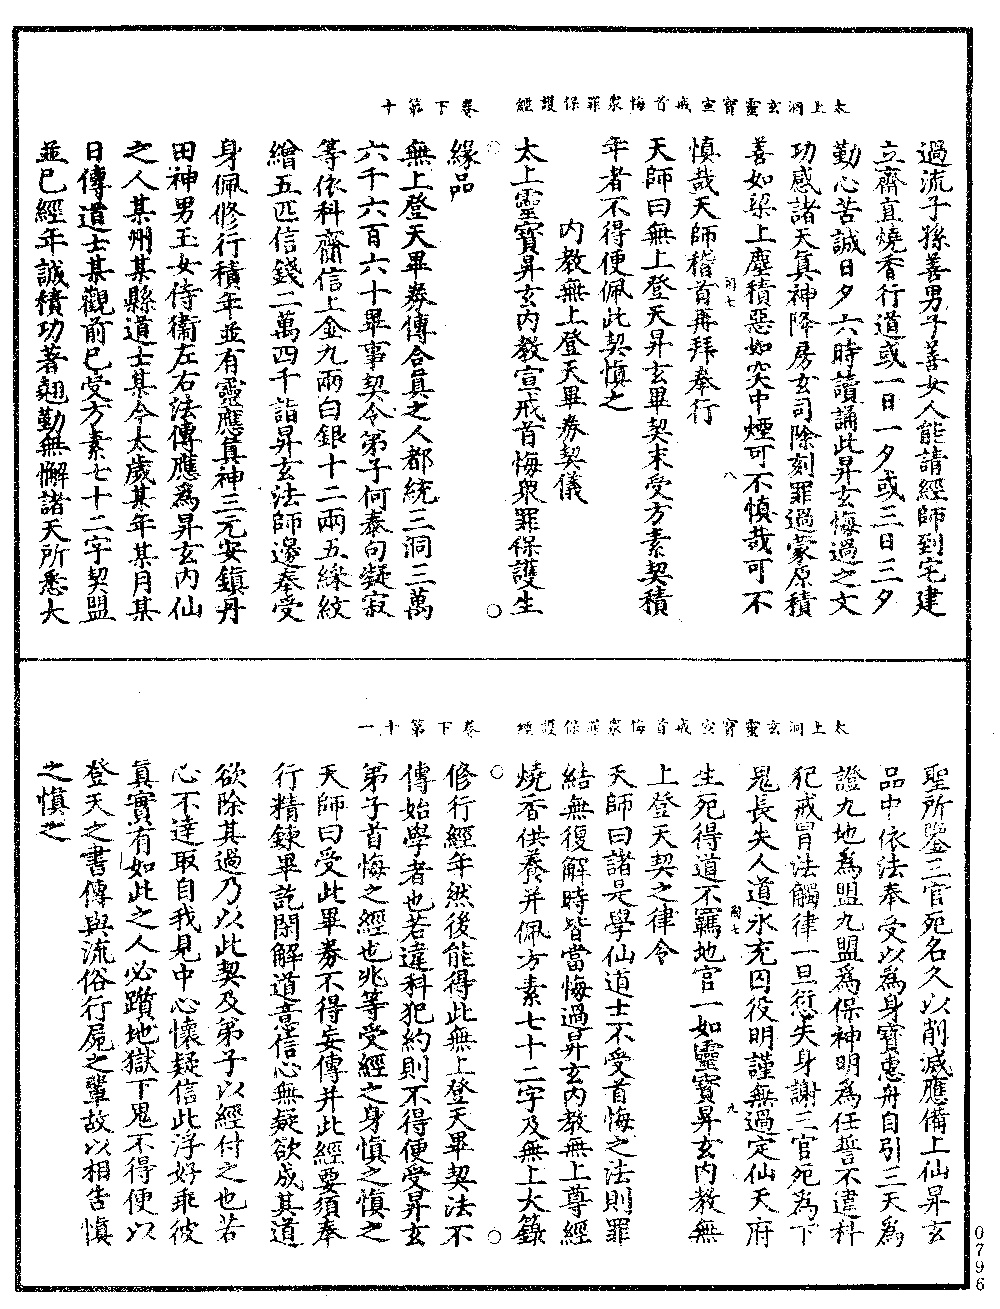 太上洞玄靈寶宣戒首悔衆罪保護經　卷下第十
過流子孫善男子善女人能請經師到宅建
立齋直燒香行道或一日一夕或三日三夕
勤心苦誠日夕六時讀誦此昇玄悔過之文
功感諸天真神降房玄司除刻罪過蒙原積
善如梁上塵積惡如突中煙可不慎哉可不
慎哉天師稽首再拜奉行
天師曰無上登天昇玄畢契未受方素契積
年者不得便佩此契慎之
内教無上登天畢券契儀
太上靈寶昇玄内教宣戒首悔衆罪保護生
緣品
無上登天畢券傳合真之人都統三洞三萬
六千六百六十畢事契令弟子何泰句凝寂
等依科齎信上金九兩白銀十二兩五綵紋
繒五匹信錢二萬四千詣昇玄法師邊奉受
身佩修行積年並有靈應真神三元安鎮丹
田神男玉女侍衛左右法傳應爲昇玄内仙
之人某州某縣道士某今太歲某年某月某
日傳道士某觀前已受方素七十二字契盟
並已經年誠積功著翹勤無懈諸天所悉大
太上洞玄靈寶宣戒首悔衆罪保護經　卷下第十一
聖所鑒三官死名久以削滅應備上仙昇玄
品中依法奉受以爲身寶惠舟自引三天爲
證九地爲盟九盟爲保神明爲任誓不違科
犯戒冒法觸律一旦愆失身謝三官死為下
鬼長失人道永充囚役明謹無過定仙天府
生死得道不羈地官一如靈寶昇玄内教無
上登天契之律令
天師曰諸是學仙道士不受首悔之法則罪
結無復解時皆當悔過昇玄内教無上尊經
燒香供養并佩方素七十二字及無上大籙
修行經年然後能得此無上登天畢契法不
傳始學者也若違科犯約則不得便受昇玄
弟子首悔之經也兆等受經之身慎之慎之
天師曰受此畢券不得妄傳并此經要須奉
行精鍊畢訖開解道意信心無疑欲成其道
欲除其過乃以此契及弟子以經付之也若
心不達取自我見中心懷疑信此浮好乖彼
真實有如此之人必躓地獄下鬼不得便以
登天之書傳與流俗行屍之輩故以相告慎
之慎之
0796